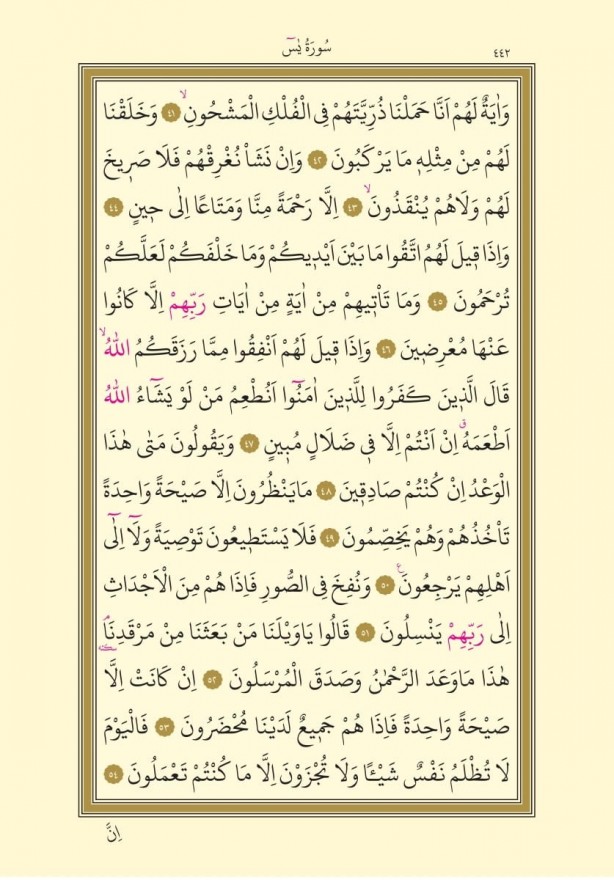 ٤٤٢
سُورَةُ يٰسٓ
وَاٰيَةٌ لَهُمْ اَنَّا حَمَلْنَا ذُرِّيَّتَهُمْ فِي الْفُلْكِ الْمَشْحُونِۙ ﴿٤١﴾ وَخَلَقْنَا
لَهُمْ مِنْ مِثْلِهِ مَا يَرْكَبُونَ ﴿٤٢﴾ وَاِنْ نَشَأْ نُغْرِقْهُمْ فَلَا صَرِيخَ
لَهُمْ وَلَاهُمْ يُنْقَذُونَۙ ﴿٤٣﴾ اِلَّا رَحْمَةً مِنَّا وَمَتَاعًا اِلٰى حِينٍ ﴿٤٤﴾
وَاِذَا قِيلَ لَهُمُ اتَّقُوا مَا بَيْنَ اَيْدِيكُمْ وَمَا خَلْفَكُمْ لَعَلَّكُمْ
تُرْحَمُونَ ﴿٤٥﴾ وَمَا تَأْتِيهِمْ مِنْ اٰيَةٍ مِنْ اٰيَاتِ رَبِّهِمْ اِلَّا كَانُوا
عَنْهَا مُعْرِضِينَ ﴿٤٦﴾ وَاِذَا قِيلَ لَهُمْ اَنْفِقُوا مِمَّا رَزَقَكُمُ اللّٰهُۙ
قَالَ الَّذِينَ كَفَرُوا لِلَّذِينَ اٰمَنُٓوا اَنُطْعِمُ مَنْ لَوْ يَشَٓاءُ اللّٰهُ
اَطْعَمَهُۗ اِنْ اَنْتُمْ اِلَّا فِي ضَلَالٍ مُبِينٍ ﴿٤٧﴾ وَيَقُولُونَ مَتٰى هٰذَا
الْوَعْدُ اِنْ كُنْتُمْ صَادِقِينَ ﴿٤٨﴾ مَايَنْظُرُونَ اِلَّا صَيْحَةً وَاحِدَةً
تَأْخُذُهُمْ وَهُمْ يَخِصِّمُونَ ﴿٤٩﴾ فَلَا يَسْتَطِيعُونَ تَوْصِيَةً وَلَٓا اِلٰٓى
اَهْلِهِمْ يَرْجِعُونَࣖ ﴿٥٠﴾ وَنُفِخَ فِي الصُّورِ فَاِذَا هُمْ مِنَ الْاَجْدَاثِ
اِلٰى رَبِّهِمْ يَنْسِلُونَ ﴿٥١﴾ قَالُوا يَاوَيْلَنَا مَنْ بَعَثَنَا مِنْ مَرْقَدِنَاۢ
هٰذَا مَاوَعَدَ الرَّحْمٰنُ وَصَدَقَ الْمُرْسَلُونَ ﴿٥٢﴾ اِنْ كَانَتْ اِلَّا
صَيْحَةً وَاحِدَةً فَاِذَا هُمْ جَمِيعٌ لَدَيْنَا مُحْضَرُونَ ﴿٥٣﴾ فَالْيَوْمَ
لَا تُظْلَمُ نَفْسٌ شَيْـًٔا وَلَا تُجْزَوْنَ اِلَّا مَا كُنْتُمْ تَعْمَلُونَ ﴿٥٤﴾
اِنَّ